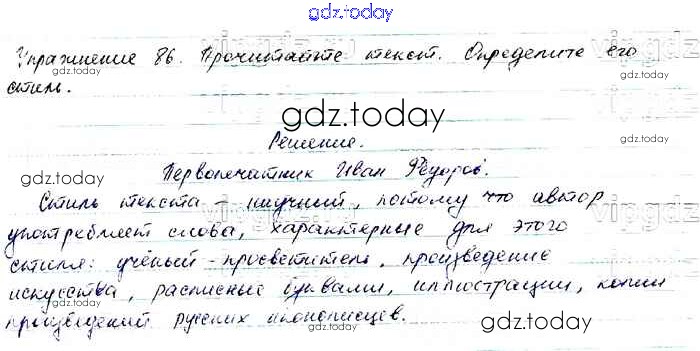 gdz.today
Упражнение 86. Прочитайте текст. Определите его
gdz.today
gdz.today
стиль.
gdz.today
Решение.
gdz.today
Первопечатник Иван Фёдоров.
gdz.today
Стиль текста - научный, потому что автор
vipgdz
употребляет слова, характерные для этого
стиля: учёный-просветитель, произведение
gdz.today
искусства, расписные буквами, иллюстрации, копии
произведений русских иконописцев.
gdz.today